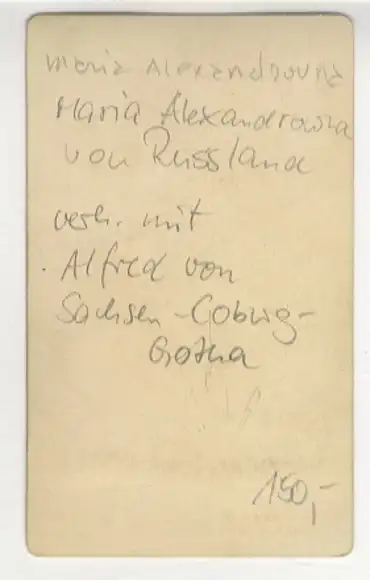 Maria Alexandrovna
Maria Alexandrowna
von Russland
verh. mit
Alfred von
Sachsen-Coburg-
Gotha
150,-